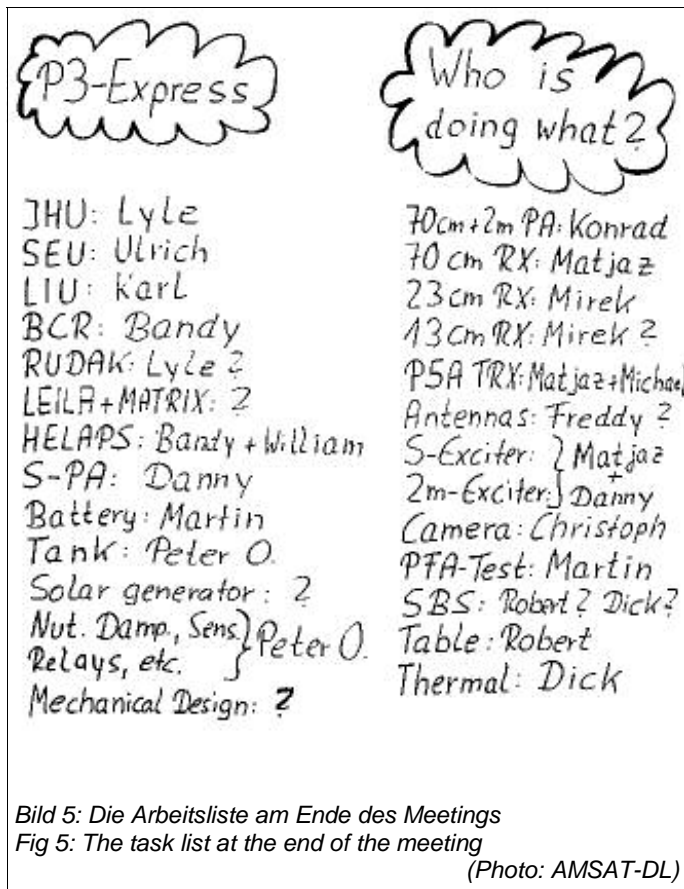 P3-Express
JHU: Lyle
SEU: Ulrich
LIU: Karl
BCR: Bandy
RUDAK: Lyle ?
LEILA+MATRIX: ?
HELAPS: Bandy + William
S-PA: Danny
Battery: Martin
Tank: Peter O.
Solar generator: ?
Nut. Damp., Sens.} Peter O.
Relays, etc.
Mechanical Design: ?
Who is
doing what?
70cm+2m PA: Konrad
70 cm RX: Matjaz
23 cm RX: Mirek
13 cm RX: Mirek ?
P5A TRX: Matjaz+Michael
Antennas: Freddy ?
S-Exciter: } Matjaz
+
2m-Exciter: } Danny
Camera: Christoph
PFA-Test: Martin
SBS: Robert? Dick?
Table: Robert
Thermal: Dick
Bild 5: Die Arbeitsliste am Ende des Meetings
Fig 5: The task list at the end of the meeting
(Photo: AMSAT-DL)